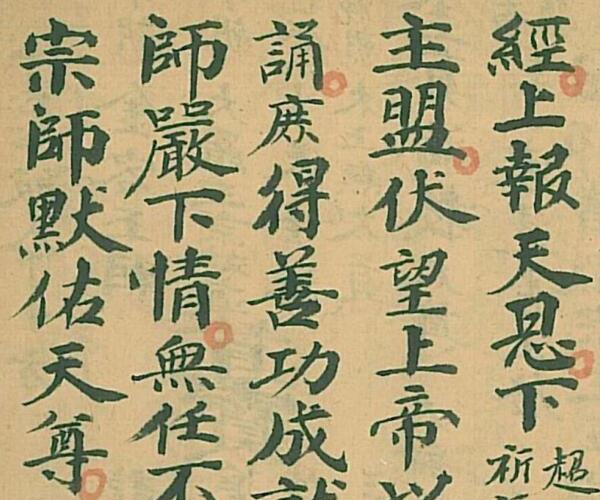 經上報天恩下祈超
主盟伏望上帝
誦庶得善功成就
師嚴下情無任不
宗師默佑天尊